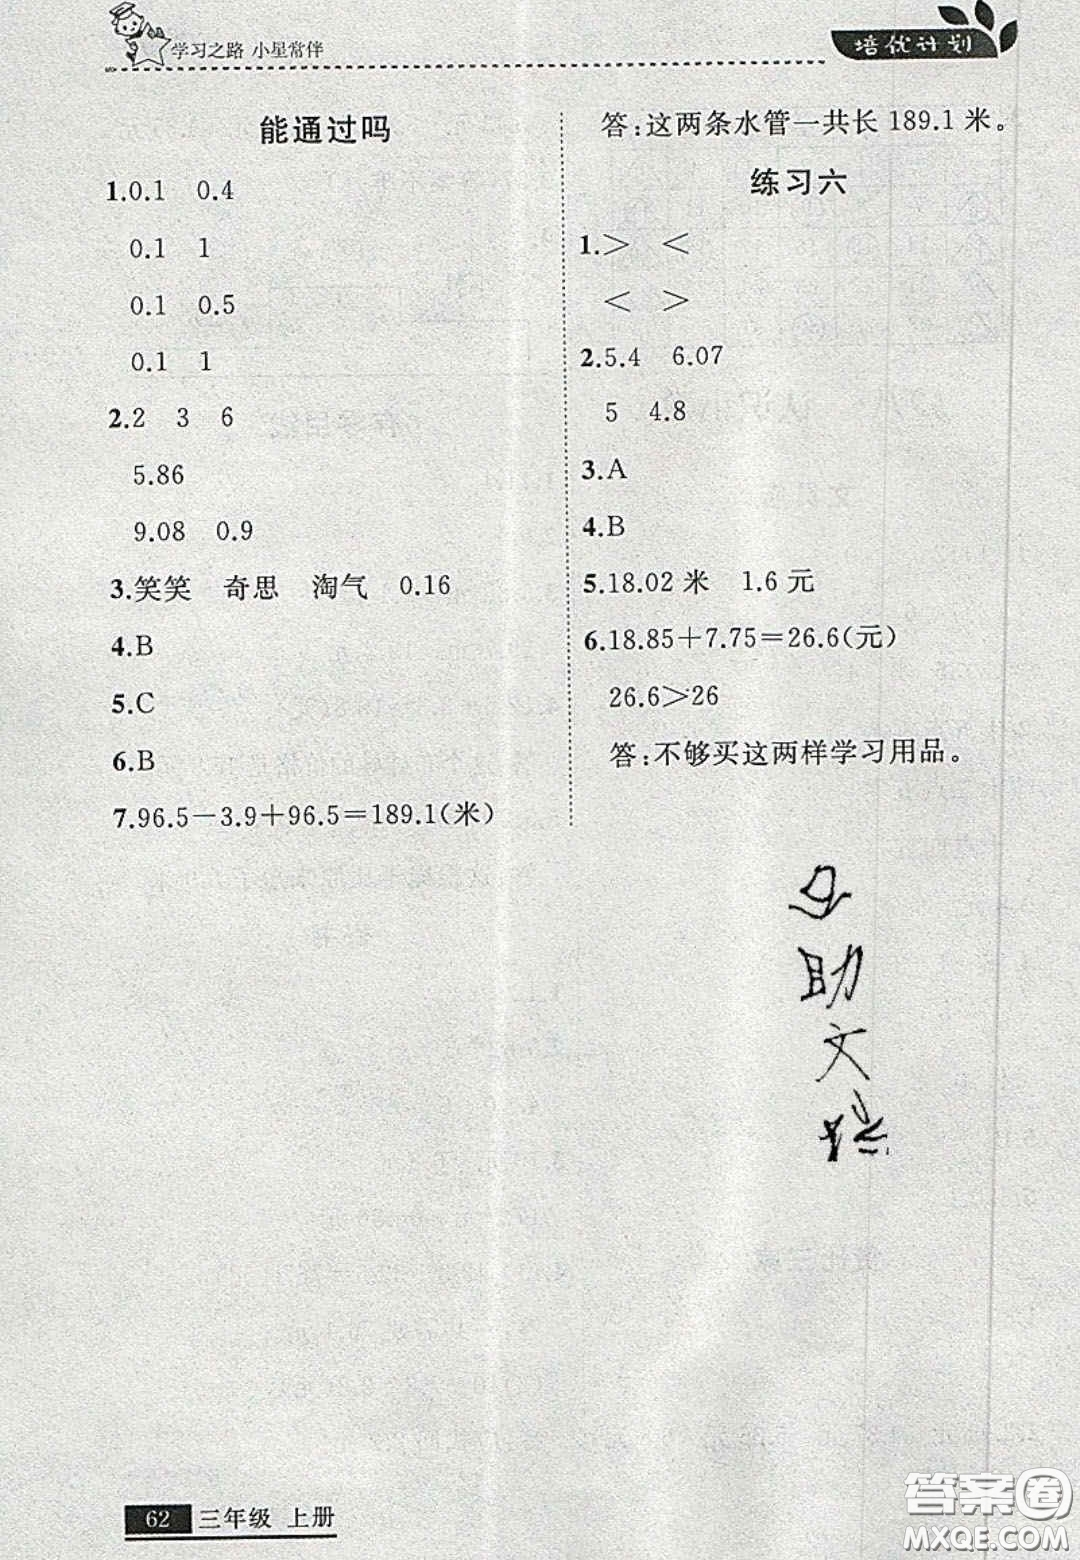 学习之路 小星常伴
培优计划
能通过吗
1.0.1 0.4
0.1 1
0.1 0.5
0.1 1
2.2 3 6
5.86
9.08 0.9
3.笑笑 奇思 淘气 0.16
4.B
5.C
6.B
7.96.5－3.9＋96.5＝189.1(米)
答:这两条水管一共长 189.1 米。
练习六
1.＞ ＜
＜ ＞
2.5.4 6.07
5 4.8
3.A
4.B
5.18.02 米 1.6 元
6.18.85＋7.75＝26.6(元)
26.6＞26
答:不够买这两样学习用品。
助
文
62 三年级 上册
答案圈
MXQE.COM